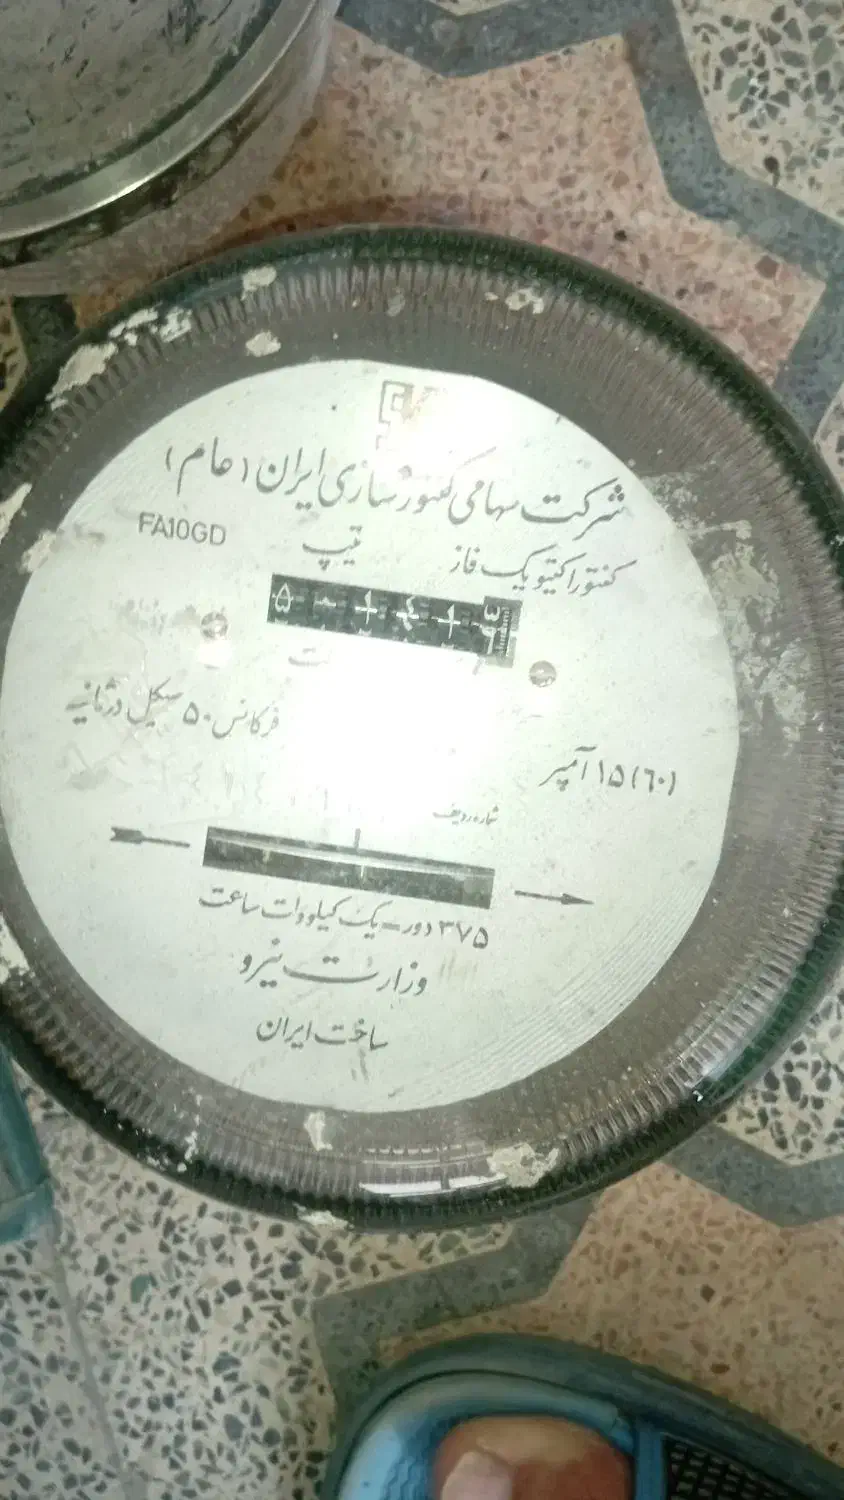 شرکت سهامی کنتورسازی ایران (عام)
کنتور اکتیو یک فاز تیپ FA10GD
فرکانس ۵۰ سیکل در ثانیه
۱۵(٦٠) آمپر
شماره ردیف
۳۷۵ دور = یک کیلووات ساعت
وزارت نیرو
ساخت ایران